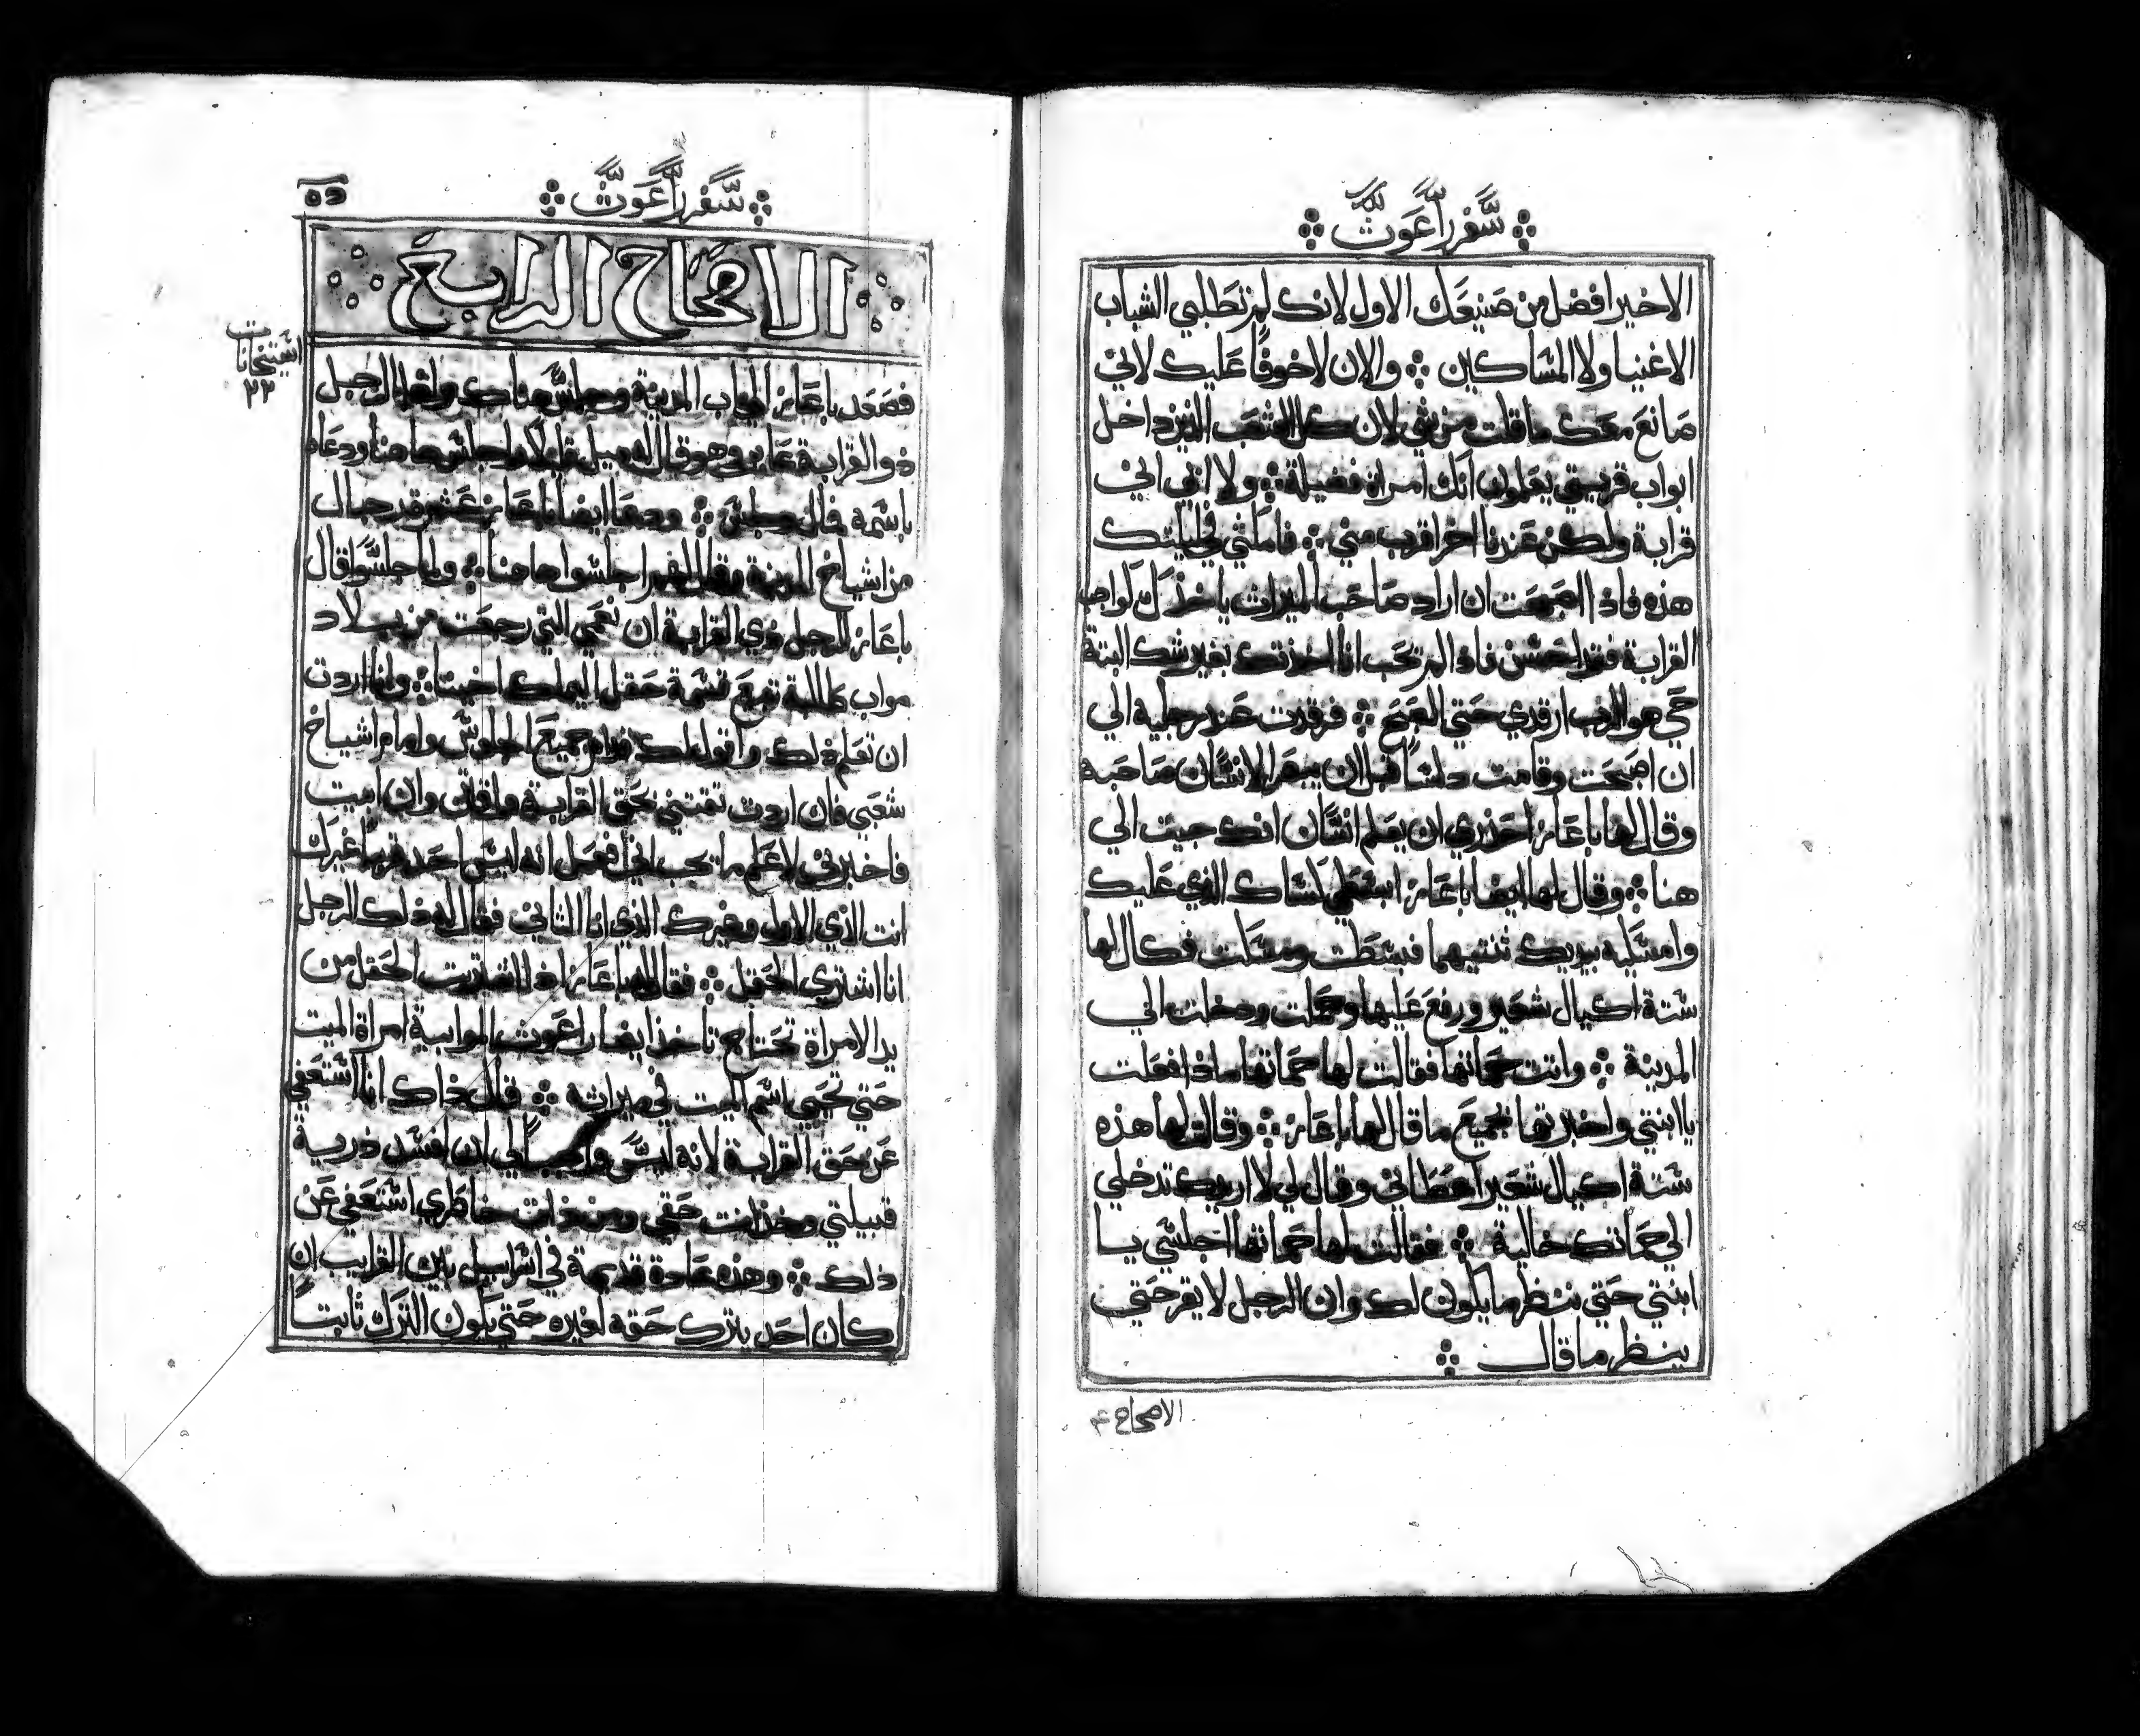 سفر راعوث
الاخير افضل من صنيعك الاول لانك لم تطلبي الشباب
الاغنيا ولا المساكين والان لا خوفا عليك لاني
صانع معك ما قلت من شي لان كل الشعب الذين داخل
ابواب قريتي يعلمون انك امراة فضيلة ولا انني اني
قرابة ولكن عندنا اخر اقرب مني في ليلتك
هذه فاذا اصبحت ان اراد صاحب الميراث ياخذك لواجب
القرابة فقد احسن فاذا لم تحب انا اخذتك بغير شك البتة
حي هو الرب ارقدي حتي الصبح فرقدت عند رجليه الي
ان اصبحت وقامت دلسا قبل ان يبصر الانسان صاحبه
وقال لها باعاز احذري ان يعلم انسان انك جيت الي
هنا وقال لها ايضا باعاز ابسطي كساك الذي عليك
وامسكيه بيديك ثنتيهما فبسطت ومسكت فكال لها
ستة اكيال شعير ورفع عليها وحملت ودخلت الي
المدينة واتت حماتها فقالت لها حماتها ماذا فعلت
يا ابنتي واخبرتها بجميع ما قال لها باعاز وقالت لها هذه
ستة اكيال شعير اعطاني وقال لي لا اريدك تدخلي
الي حماتك خالية فقالت لها حماتها اجلسي يا
ابنتي حتي ننظر ما يكون لك وان الرجل لا يقر حتي
ينظر ما قال
الاصحاح ٤
سفر راعوث
الاصحاح الرابع
استنخانات
٢٢
فصعد باعاز الي باب المدينة وجلس هناك واذا الرجل
ذو القرابة عابر وهو قال له ميل قليلا واجلس هاهنا ودعاه
باسمه ودعا ايضا باعاز عشر رجال
من اشياخ المدينة وقال لهم اجلسوا هاهنا ولما جلسوا قال
باعاز للرجل ذي القرابة ان نعمي التي رجعت من بلاد
مواب طالبة تبيع قسمة حقل اليملك اخينا وانا اردت
ان تعلم ذلك واقول لك قدام جميع الجلوس وامام اشياخ
شعبي فان اردت تقتني بحق القرابة فاقتن وان ابيت
فاخبرني لاعلم ما يجب اني افعل انه ليس احد قريبا غيرك
انت الذي الاول وغيرك الذي انا الثاني فقال له ذلك الرجل
انا اشتري الحقل فقال له باعاز اذا اشتريت الحقل من
يد الامراة تحتاج تاخذ ايضا راعوث الموابية امراة الميت
حتي تحيي اسم الميت في ميراثه فقال ذاك انا استعفي
عن حق القرابة لانه ليس واجبا لي ان افسد ذرية
قبيلتي وخذ انت حقي ومن ذات خاطري استعفي عن
ذلك وهذه عادة قديمة في اسراييل بين القرايب ان
كان احد يترك حقه لغيره حتي يكون الترك ثابتا